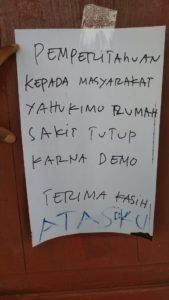 PEMPERITAHUAN
KEPADA MASYARAKAT
YAHUKIMO RUMAH
SAKIT TUTUP
KARNA DEMO
TERIMA KASIH
ATAS